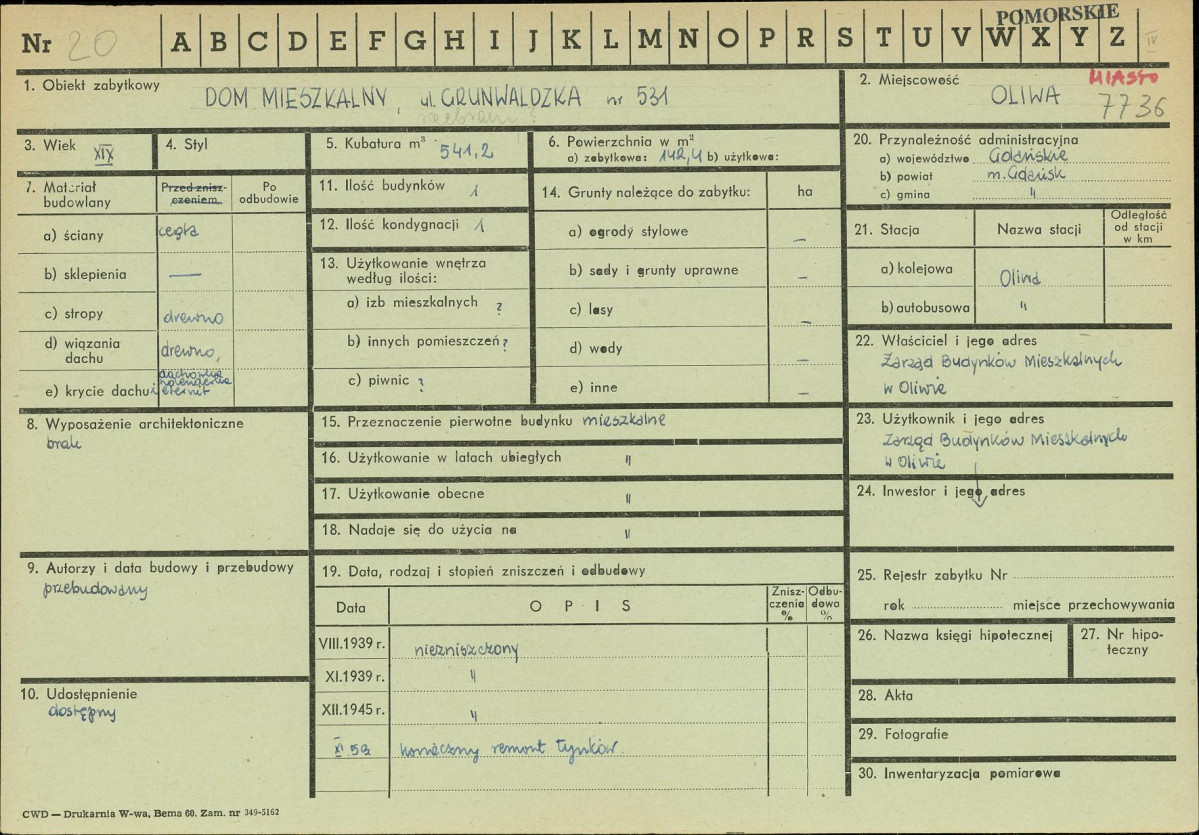 POMORSKIE
Nr 20 A B C D E F G H I J K L M N O P R S T U V W X Y Z IV
1. Obiekt zabytkowy
DOM MIESZKALNY, ul. GRUNWALDZKA nr 531
2. Miejscowość MIASTO
OLIWA 7736
3. Wiek XIX
4. Styl
5. Kubatura m³ 541,2
6. Powierzchnia w m²
a) zabytkowa: 142,4 b) użytkowa:
20. Przynależność administracyjna
a) województwo Gdańskie
b) powiat m. Gdańsk
c) gmina "
7. Materiał budowlany
Przed zniszczeniem
Po odbudowie
a) ściany cegła
b) sklepienia —
c) stropy drewno
d) wiązania dachu drewno,
e) krycie dachu dachówka holenderka i eternit
11. Ilość budynków 1
12. Ilość kondygnacji 1
13. Użytkowanie wnętrza
według ilości:
a) izb mieszkalnych ?
b) innych pomieszczeń ?
c) piwnic ?
14. Grunty należące do zabytku: ha
a) ogrody stylowe –
b) sady i grunty uprawne –
c) lasy –
d) wody –
e) inne –
21. Stacja
Nazwa stacji
Odległość
od stacji
w km
a) kolejowa Oliwa
b) autobusowa "
22. Właściciel i jego adres
Zarząd Budynków Mieszkalnych
w Oliwie
8. Wyposażenie architektoniczne
brak
15. Przeznaczenie pierwotne budynku mieszkalne
16. Użytkowanie w latach ubiegłych "
17. Użytkowanie obecne "
18. Nadaje się do użycia na "
23. Użytkownik i jego adres
Zarząd Budynków Mieszkalnych
w Oliwie
24. Inwestor i jego adres
9. Autorzy i data budowy i przebudowy
przebudowany
10. Udostępnienie
dostępny
19. Data, rodzaj i stopień zniszczeń i odbudowy
Data
OPIS
Zniszczenia %
Odbudowa %
VIII.1939 r. niezniszczony
XI.1939 r. "
XII.1945 r. "
XI.59 konieczny remont tynków
25. Rejestr zabytku Nr
rok miejsce przechowywania
26. Nazwa księgi hipotecznej
27. Nr hipoteczny
28. Akta
29. Fotografie
30. Inwentaryzacja pomiarowa
CWD — Drukarnia W-wa, Bema 60. Zam. nr 349-5162